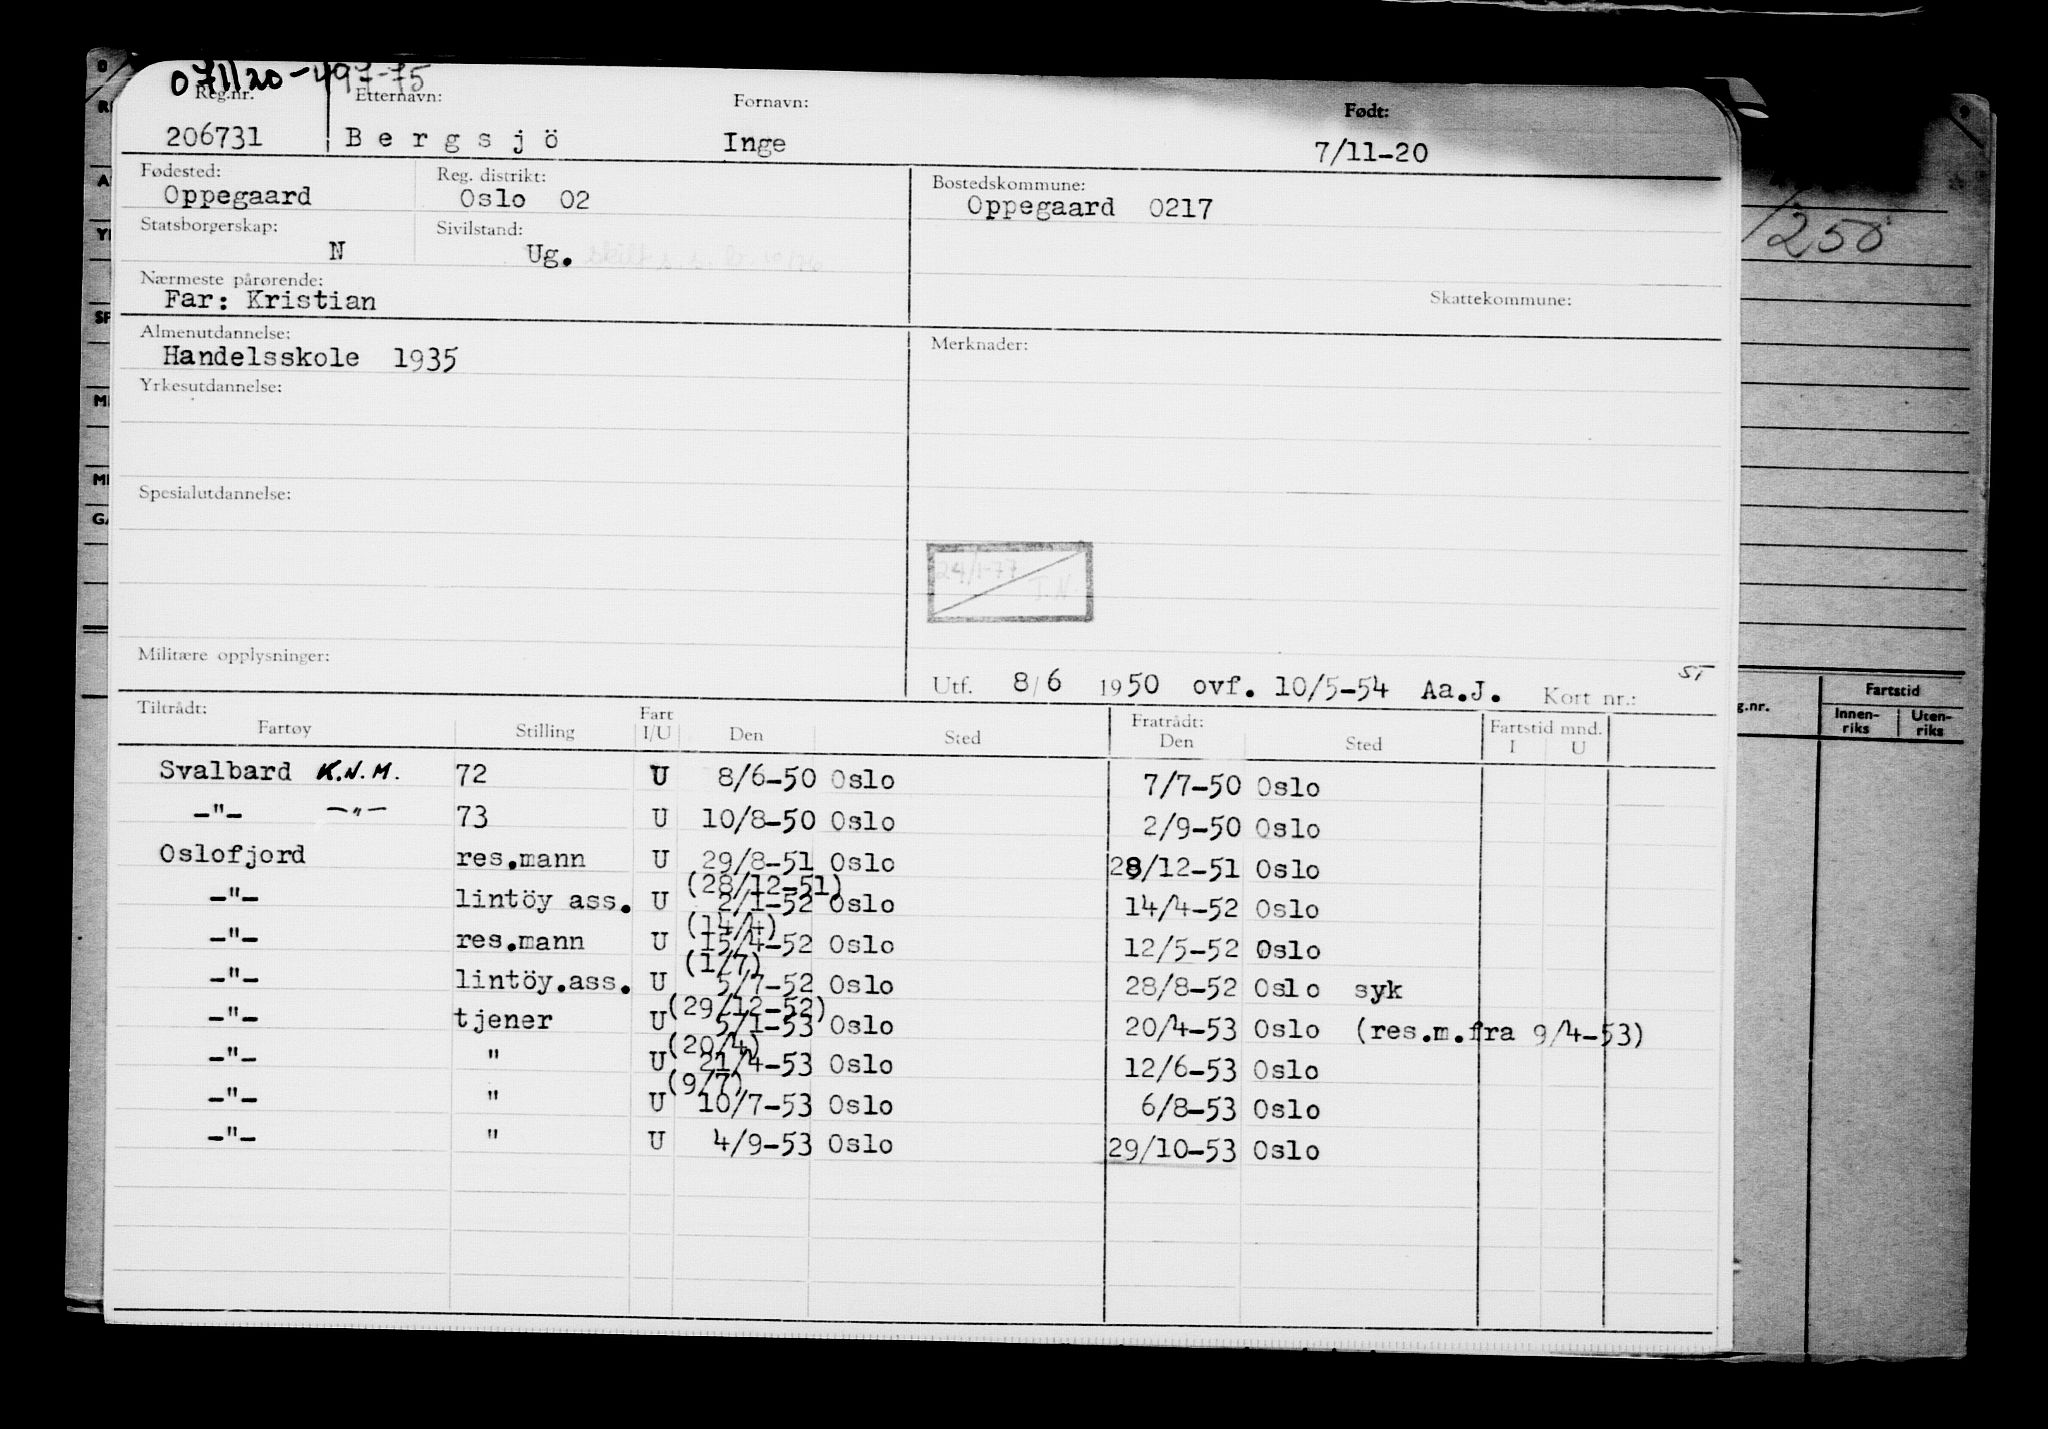 071120-497-75
Reg.nr. Etternavn: Fornavn: Født:
206731 Bergsjö Inge 7/11-20
Fødested: Reg. distrikt: Bostedskommune:
Oppegaard Oslo 02 Oppegaard 0217
Statsborgerskap: Sivilstand:
N Ug.
Nærmeste pårørende: Skattekommune:
Far: Kristian
Almenutdannelse: Merknader:
Handelsskole 1935
Yrkesutdannelse:
Spesialutdannelse:
24/1-77 T.N.
Militære opplysninger:
Utf. 8/6 1950 ovf. 10/5-54 Aa.J. Kort nr.: ST
Tiltrådt: Fratrådt:
Fartøy Stilling Fart I/U Den Sted Den Sted Fartstid mnd. I U
Svalbard K.N.M. 72 U 8/6-50 Oslo 7/7-50 Oslo
-"- -"- 73 U 10/8-50 Oslo 2/9-50 Oslo
Oslofjord res.mann U 29/8-51 Oslo 28/12-51 Oslo
(28/12-51)
-"- lintöy ass. U 2/1-52 Oslo 14/4-52 Oslo
(14/4)
-"- res.mann U 15/4-52 Oslo 12/5-52 Oslo
(1/7)
-"- lintöy.ass. U 5/7-52 Oslo 28/8-52 Oslo syk
(29/12-52)
-"- tjener U 5/1-53 Oslo 20/4-53 Oslo (res.m.fra 9/4-53)
(20/4)
-"- " U 21/4-53 Oslo 12/6-53 Oslo
(9/7)
-"- " U 10/7-53 Oslo 6/8-53 Oslo
-"- " U 4/9-53 Oslo 29/10-53 Oslo
/250
g.nr. Fartstid
Innen-riks Uten-riks